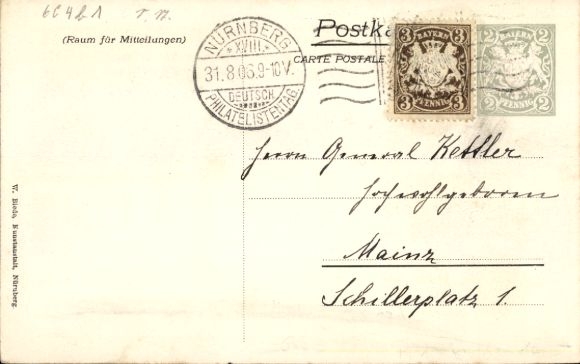 664b1
(Raum für Mitteilungen)
NÜRNBERG
XVIII
31.8.06.9-10V.
DEUTSCH.
PHILATELISTENTAG.
Postka
CARTE POSTALE
BAYERN
3 3
3 PFENNIG 3
BAYERN
2 2
2 PFENNIG 2
Herrn General Kettler
Hochwohlgeboren
Mainz
Schillerplatz 1.
W. Biede, Kunstanstalt, Nürnberg.